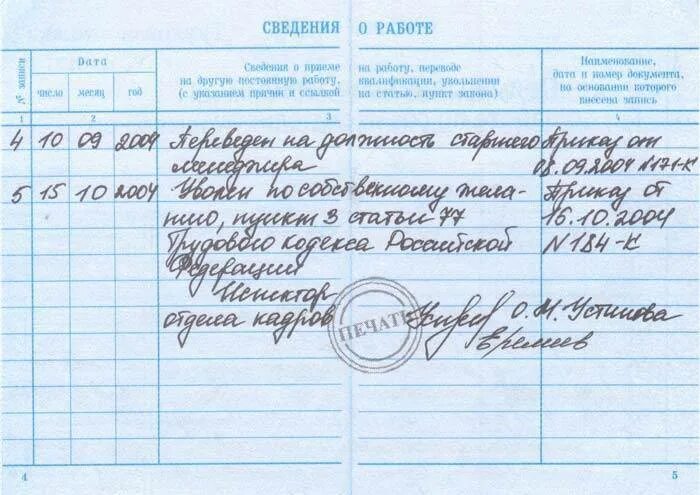 СВЕДЕНИЯ О РАБОТЕ
№ записи
Дата
число
месяц
год
Сведения о приеме на работу, переводе
на другую постоянную работу, квалификации, увольнении
(с указанием причин и ссылкой на статью, пункт закона)
Наименование,
дата и номер документа,
на основании которого
внесена запись
1 2 3 4
4 10 09 2004 Переведен на должность старшего Приказ от
менеджера 08.09.2004 №171-К
5 15 10 2004 Уволен по собственному жела- Приказ от
нию, пункт 3 статьи 77 15.10.2004
Трудового кодекса Российской N184-К
Федерации
Испектор
отдела кадров О.М. Устинова
ПЕЧАТЬ
Еремеев
4 5